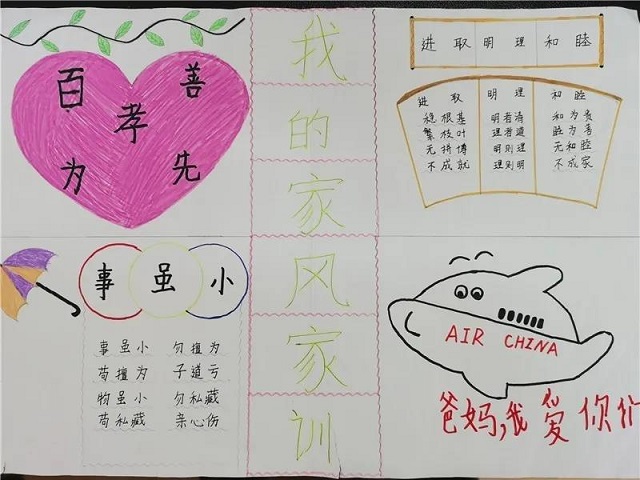 百善孝为先
我的家风家训
进取 明理 和睦
进取 明理 和睦
稳根基 明者清 和为贵
繁枝叶 理者道 睦为善
无拼博 明则理 无和睦
不成就 理则明 不成家
事虽小
事虽小 勿擅为
苟擅为 子道亏
物虽小 勿私藏
苟私藏 亲心伤
AIR CHINA
爸妈,我爱你们